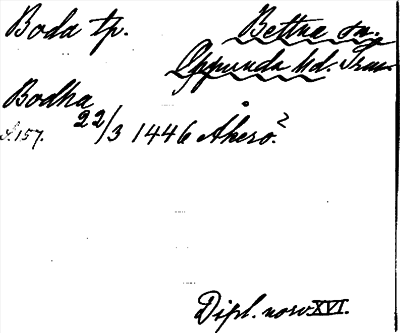 Boda tp. Bettna sn.
Oppunda hd.
Bodha
S. 157. 22/3 1446 Åkerö?
Dipl. norv XVI.